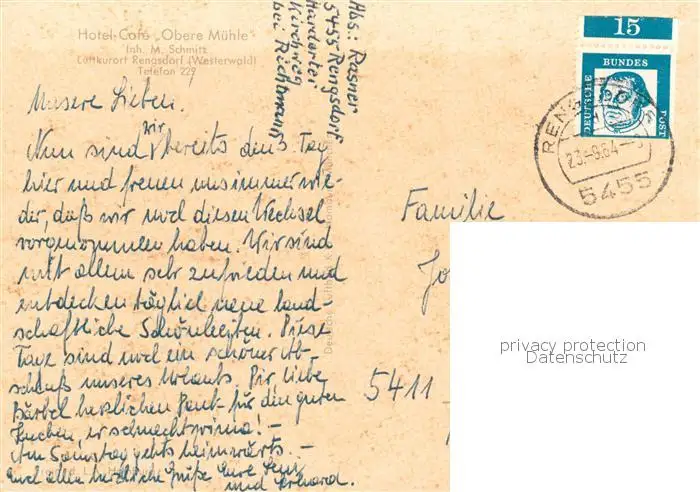 Hotel-Café „Obere Mühle"
Inh. M. Schmitt
Luftkurort Rengsdorf (Westerwald)
Telefon 229
Abs.: Rasner
5455 Rengsdorf
Kirchweg
bei Richtmann
15
DEUTSCHE
BUNDES
POST
RENGSDORF
23.-8.64-
5455
Unsere Lieben.
Nun sind wir bereits den 3. Tag
hier und freuen uns immer wie-
der, daß wir noch diesen Wechsel
vorgenommen haben. Wir sind
mit allem sehr zufrieden und
entdecken täglich neue land-
schaftliche Schönheiten. Diese
Tage sind noch ein schöner Ab-
schluß unseres Urlaubs. Dir, liebe
Bärbel herzlichen Dank für den guten
Kuchen, er schmeckt prima! –
Am Samstag gehts heimwärts. –
Euch allen herzliche Grüße Eure
und Erhard.
Familie
Jo
5411
privacy protection
Datenschutz